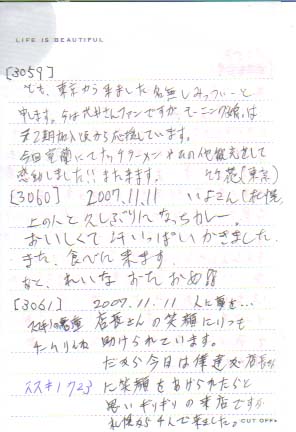 LIFE IS BEAUTIFUL
[3059]
ども、東京から来ました名無しみっつぃーと
申します。今は ファンですがモーニング娘。は
第2期加入頃から応援しています。
今回室蘭にてナッチラーメンやその他観光をして
感動しました!!また来ます。 竹花(東京)
[3060] 2007.11.11 いよこん(札幌)
上の人と久しぶりになっちカレー。
おいしくて汗いっぱいかきました。
また、食べに来ます。
あと、れいな おた おめ
[3061] 2007.11.11 人に夢を…
店長さんの笑顔にいつも
助けられています。
だから今日は僕達が店長さん
ススキ1723 に笑顔をあげられたらと
思いギリギリの来店ですが
札幌から4人で来ました。
CUT OFF